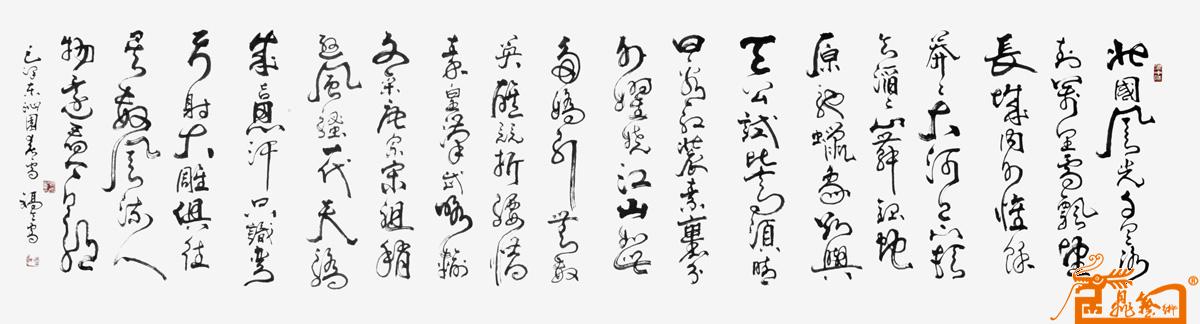 北國風光千里冰
封萬里雪飄望
長城內外惟餘
莽莽大河上下頓
失滔滔山舞銀蛇
原馳蠟象欲與
天公試比高須晴
日看紅裝素裹分
外妖嬈江山如此
多嬌引無數
英雄競折腰惜
秦皇漢武略輸
文采唐宗宋祖稍
遜風騷一代天驕
成吉思汗只識彎
弓射大雕俱往
矣數風流人
物還看今朝
毛澤東沁園春雪